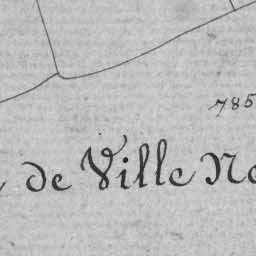 785
de Ville Ne